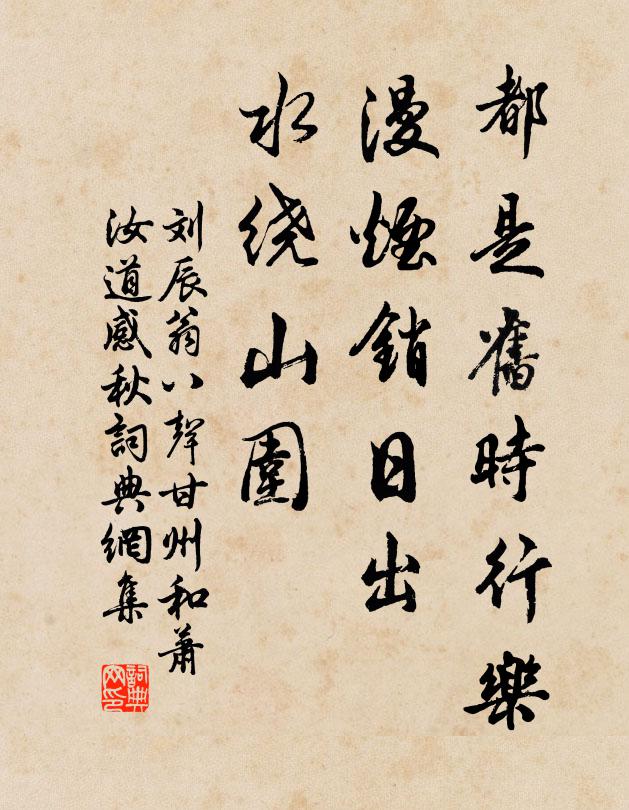 都是舊時行樂
漫煙銷日出
水绕山圍
刘辰翁八聲甘州和萧
汝道感秋詞典網集
詞典
网印